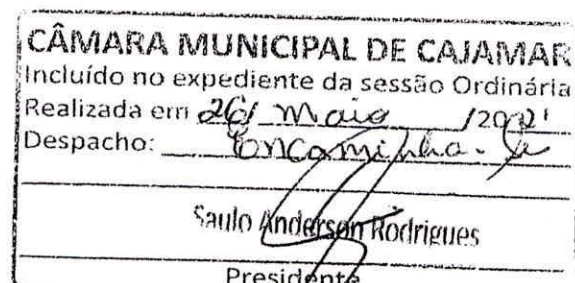 CÂMARA MUNICIPAL DE CAJAMAR
Incluído no expediente da sessão Ordinária
Realizada em 26/ Maio /2021
Despacho: Encaminha-se
Saulo Anderson Rodrigues
Presidente